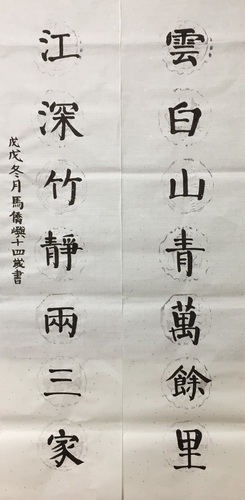 雲白山青萬餘里
江深竹靜兩三家
戊戌冬月馬僑嶼十四歲書